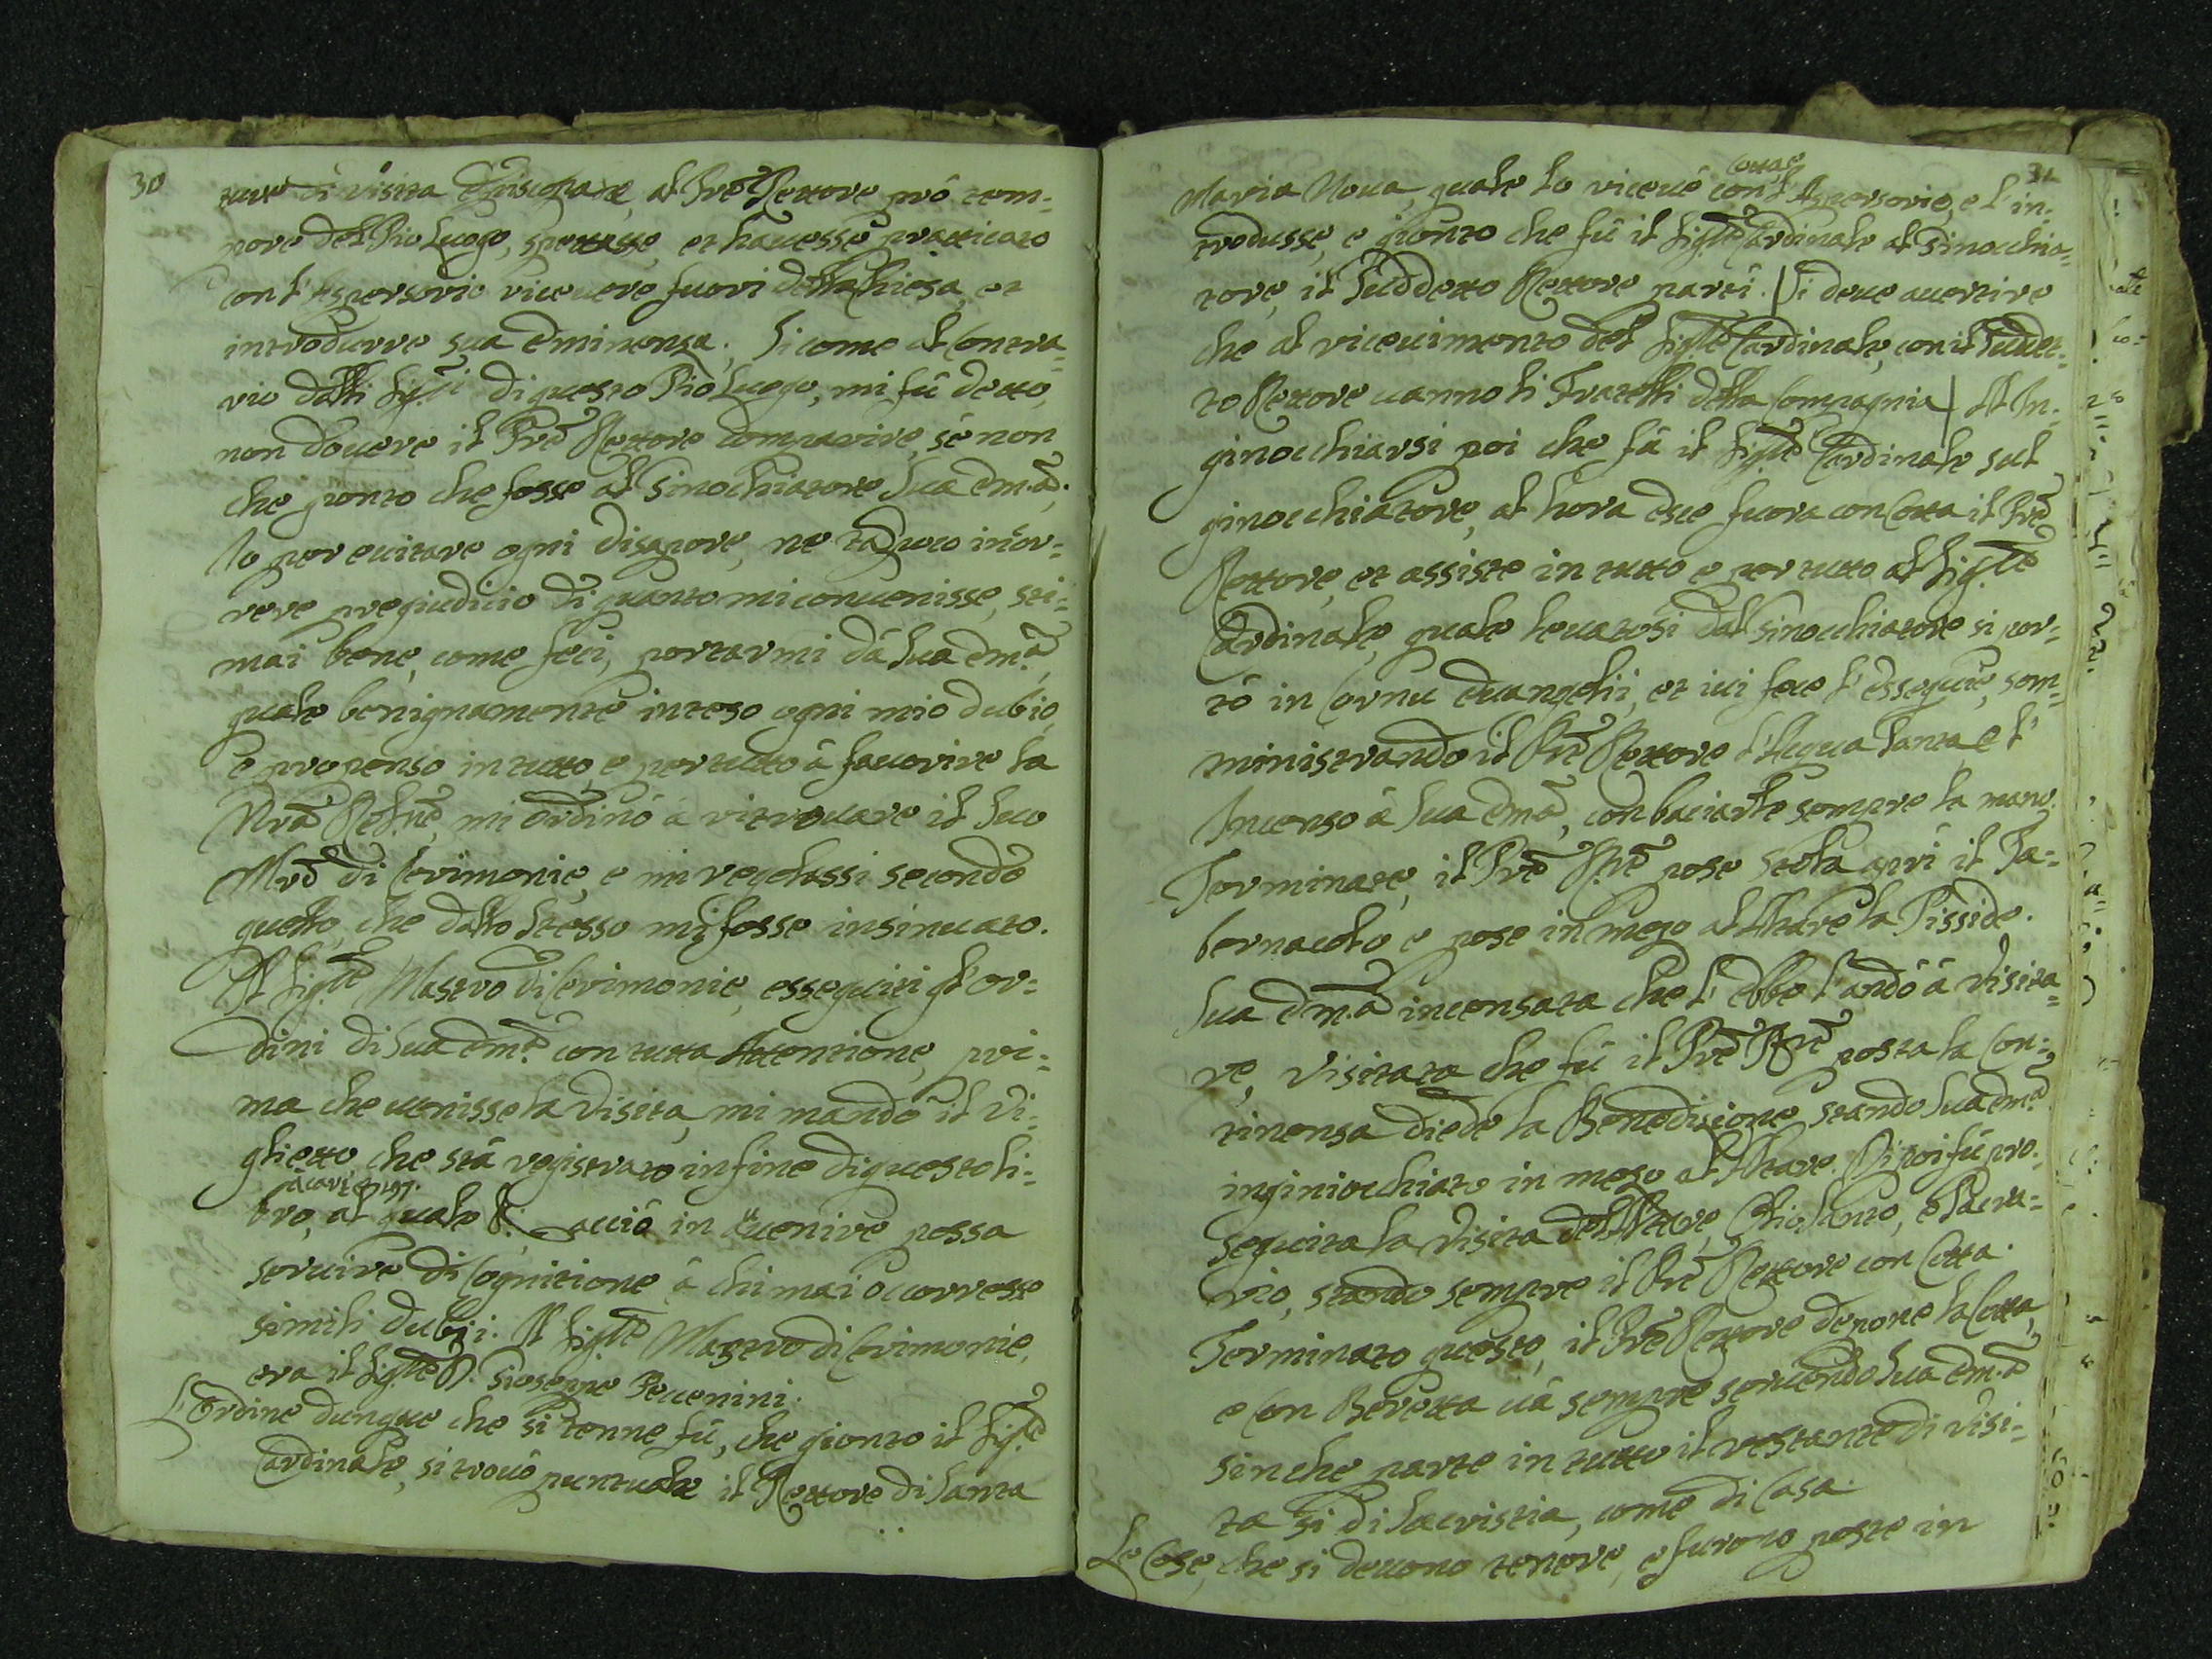 30
ture di visita Episcopale, al Prē Rettore prò tem-
pore del Pio Luogo, spettasse, et hauesse pratticato
con l'Aspersorio riceuere fuori della Chiesa, et
introdurre sua Eminenza. Si come al Contra-
rio dalli Sigri di questo Pio Luogo, mi fù detto,
non douere il Prē Rettore comparire, sé non
che gionto che fosse al Ginochiatore Sua Emã.
Io per euitare ogni disapore, ne tãpoco incor-
rere pregiudicio di quanto mi conuenisse, sti-
mai bene, come feci, portarmi dá Sua Emã,
quale benignamente inteso ogni mio dubio,
e propenso in tutto, e per tutto á fauorire la
Nrã Relne, mi ordinó á ritrouare il suo
Mrõ di Cerimonie, e mi regolassi secondo
quello, che dallo stesso mi fosse insinuato.
Il Sigre Mastro di Cerimonie, esseguiti gl'or-
dini di Sua Emã con tutta Attentione, pri-
ma che uenisse la Visita, mi mandó il Vi-
glietto, che stá registrato in fine di questo li-
à cart 197.
bro, al quale acció in auuenire possa
seruire di Cognitione á chi mai occorresse
simili dubij. Il Sigre Mastro di Cerimonie,
era il Sigre D. Gioseppe Peuenini.
L'Ordine dunque che si tenne fú, che gionto il Sigre
Cardinale, si trouó puntuale il Rettore di Santa
31
Cotta e
Maria Noua, quale lo riceué con l'Aspersorio, e l'in-
trodusse, e gionto che fú il Sigre Cardinale al Ginocchia-
tore, il Suddetto Rettore partí. | Si deue auertire
che al riceuimento del Sigre Cardinale, con il Suddet-
to Rettore uanno li Fratelli della Compagnia | Al In-
ginocchiarsi poi che fá il Sigre Cardinale sul
ginocchiatore, al hora esce fuora con Cotta il Prē
Rettore, et assiste in tutto e per tutto al Sigre
Cardinale, quale leuatosi dal Ginocchiatore si por-
tó in Cornu Euangelii, et iui fece l'essequie, som-
ministrando il Prē Rettore l'Acqua Santa, e l'
Incenso á Sua Emã, con baciarle sempre la mano.
Terminate, il Prē Rre pose stola aprí il Ta-
bernacolo e pose in mezo al Altare la Pisside.
Sua Emã incensata che l'ebbe l'andó á Visita-
re, Visitata che fú il Prē Rre posta la Con-
tinenza diede la Benedizione, stando Sua Emã
inginiocchiato in mezo al Altare. Di poi fú pro-
seguita la Visita dell'Altare, Olio Santo, e Sacra-
rio, stando sempre il Prē Rettore con Cotta.
Terminato questo, il Prē Rettore depone la Cotta,
e Con Beretta uá sempre seruendo Sua Emã
sin che parte in tutto il restante di Visi-
ta si di Sacristia, come di Casa.
Le Cose, che si deuono tenere, e furono poste in